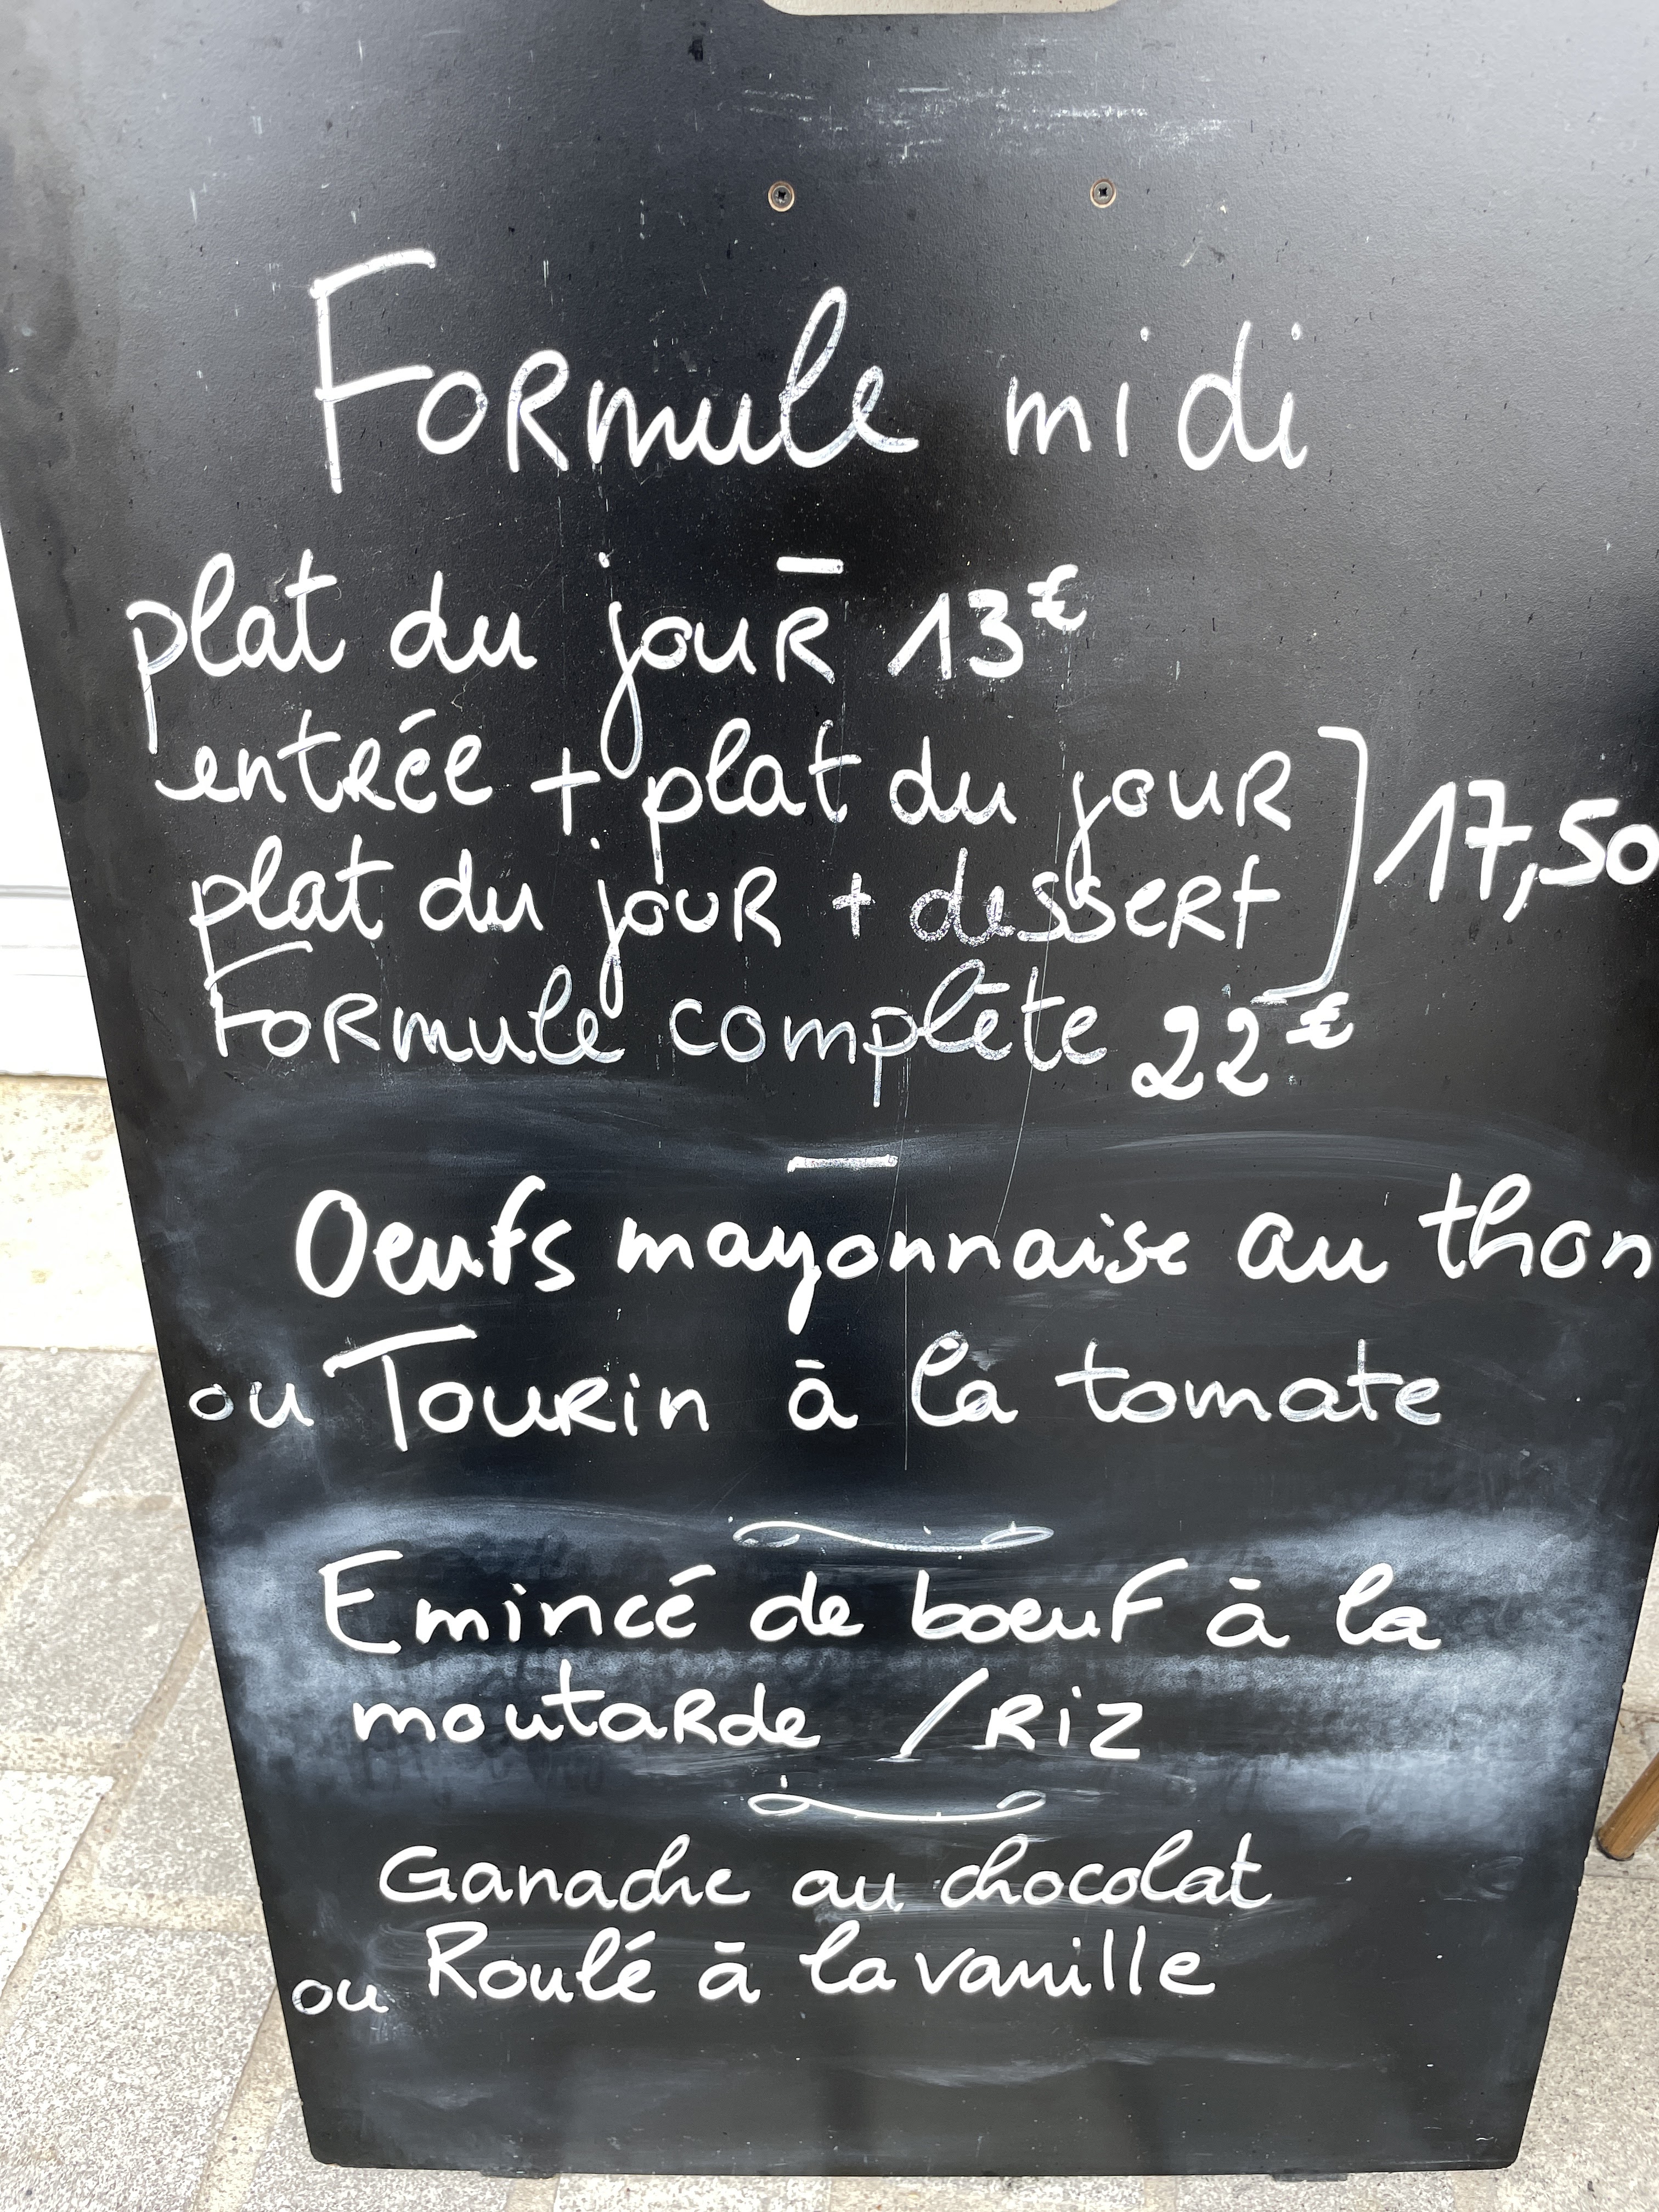 Formule midi
plat du jour 13€
entrée + plat du jour
plat du jour + dessert
17,50
Formule complète 22€
Oeufs mayonnaise au thon
ou Tourin à la tomate
Emincé de boeuf à la
moutarde / Riz
Ganache au chocolat
ou Roulé à la vanille